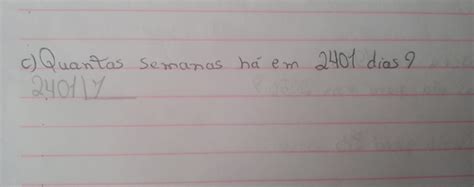 c) Quantas semanas há em 2401 dias?
2401|7